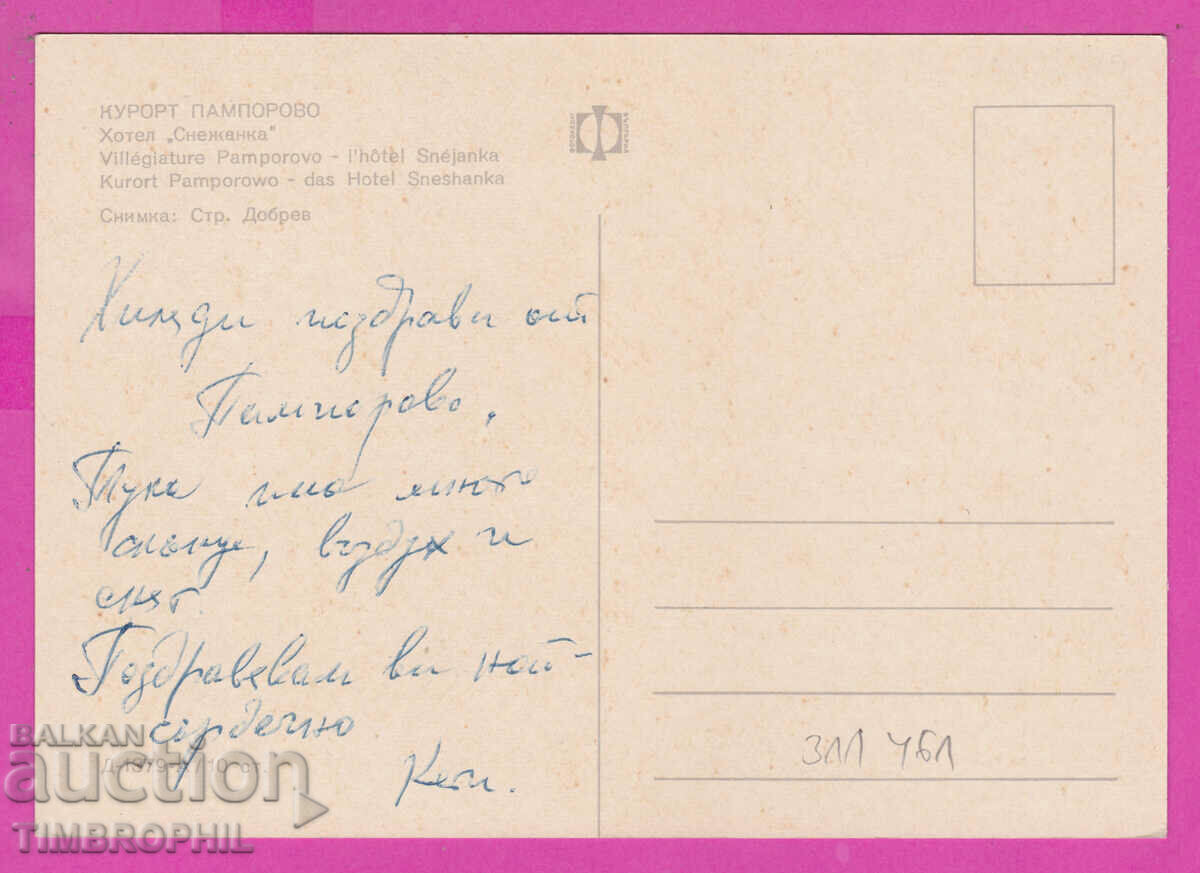 КУРОРТ ПАМПОРОВО
Хотел „Снежанка"
Villégiature Pamporovo - l'hôtel Snéjanka
Kurort Pamporowo - das Hotel Sneshanka
Снимка: Стр. Добрев
ФОТОИЗДАТ БЪЛГАРИЯ
Хиляди поздрави от
Пампорово.
Тука има много
слънце, въздух и
сняг.
Поздравявам ви най-
сърдечно
Кети.
311 461
BALKAN
auction
TIMBROPHIL